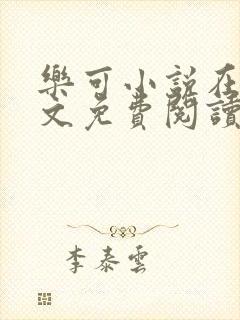 樂可小說在
文免費閱讀
李泰雲